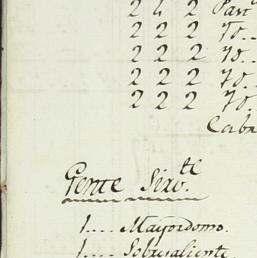 2 2 2 Part
2 2 2 70..
2 2 2 70..
2 2 2 70..
2 2 2 70..
Gente Sirv.te
1.... Mayordomo.
1.... Sobresaliente.